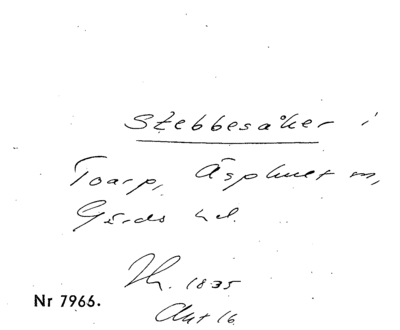 Stebbesåker i
Toarp, Äsphult sn,
Gärds hd.
Th. 1835
Akt 16
Nr 7966.